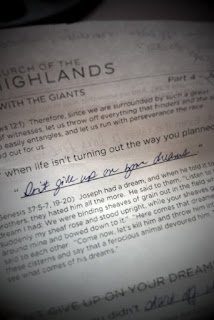 CHURCH OF THE
HIGHLANDS
WITH THE GIANTS
Part 4
12:1) Therefore, since we are surrounded by such a great
of witnesses, let us throw off everything that hinders and the
easily entangles, and let us run with perseverance the race
out for us.
when life isn't turning out the way you planned
"Don't give up on your dreams"
Genesis 37:5-7, 19-20) Joseph had a dream, and when he told it to
brothers, they hated him all the more. He said to them, "Listen to
dream I had: We were binding sheaves of grain out in the field
suddenly my sheaf rose and stood upright, while your sheaves
around mine and bowed down to it." "Here comes that dreamer
said to each other. "Come now, let's kill him and throw him
these cisterns and say that a ferocious animal devoured him.
see what comes of his dreams."
GIVE UP ON YOUR DREAM
didn't